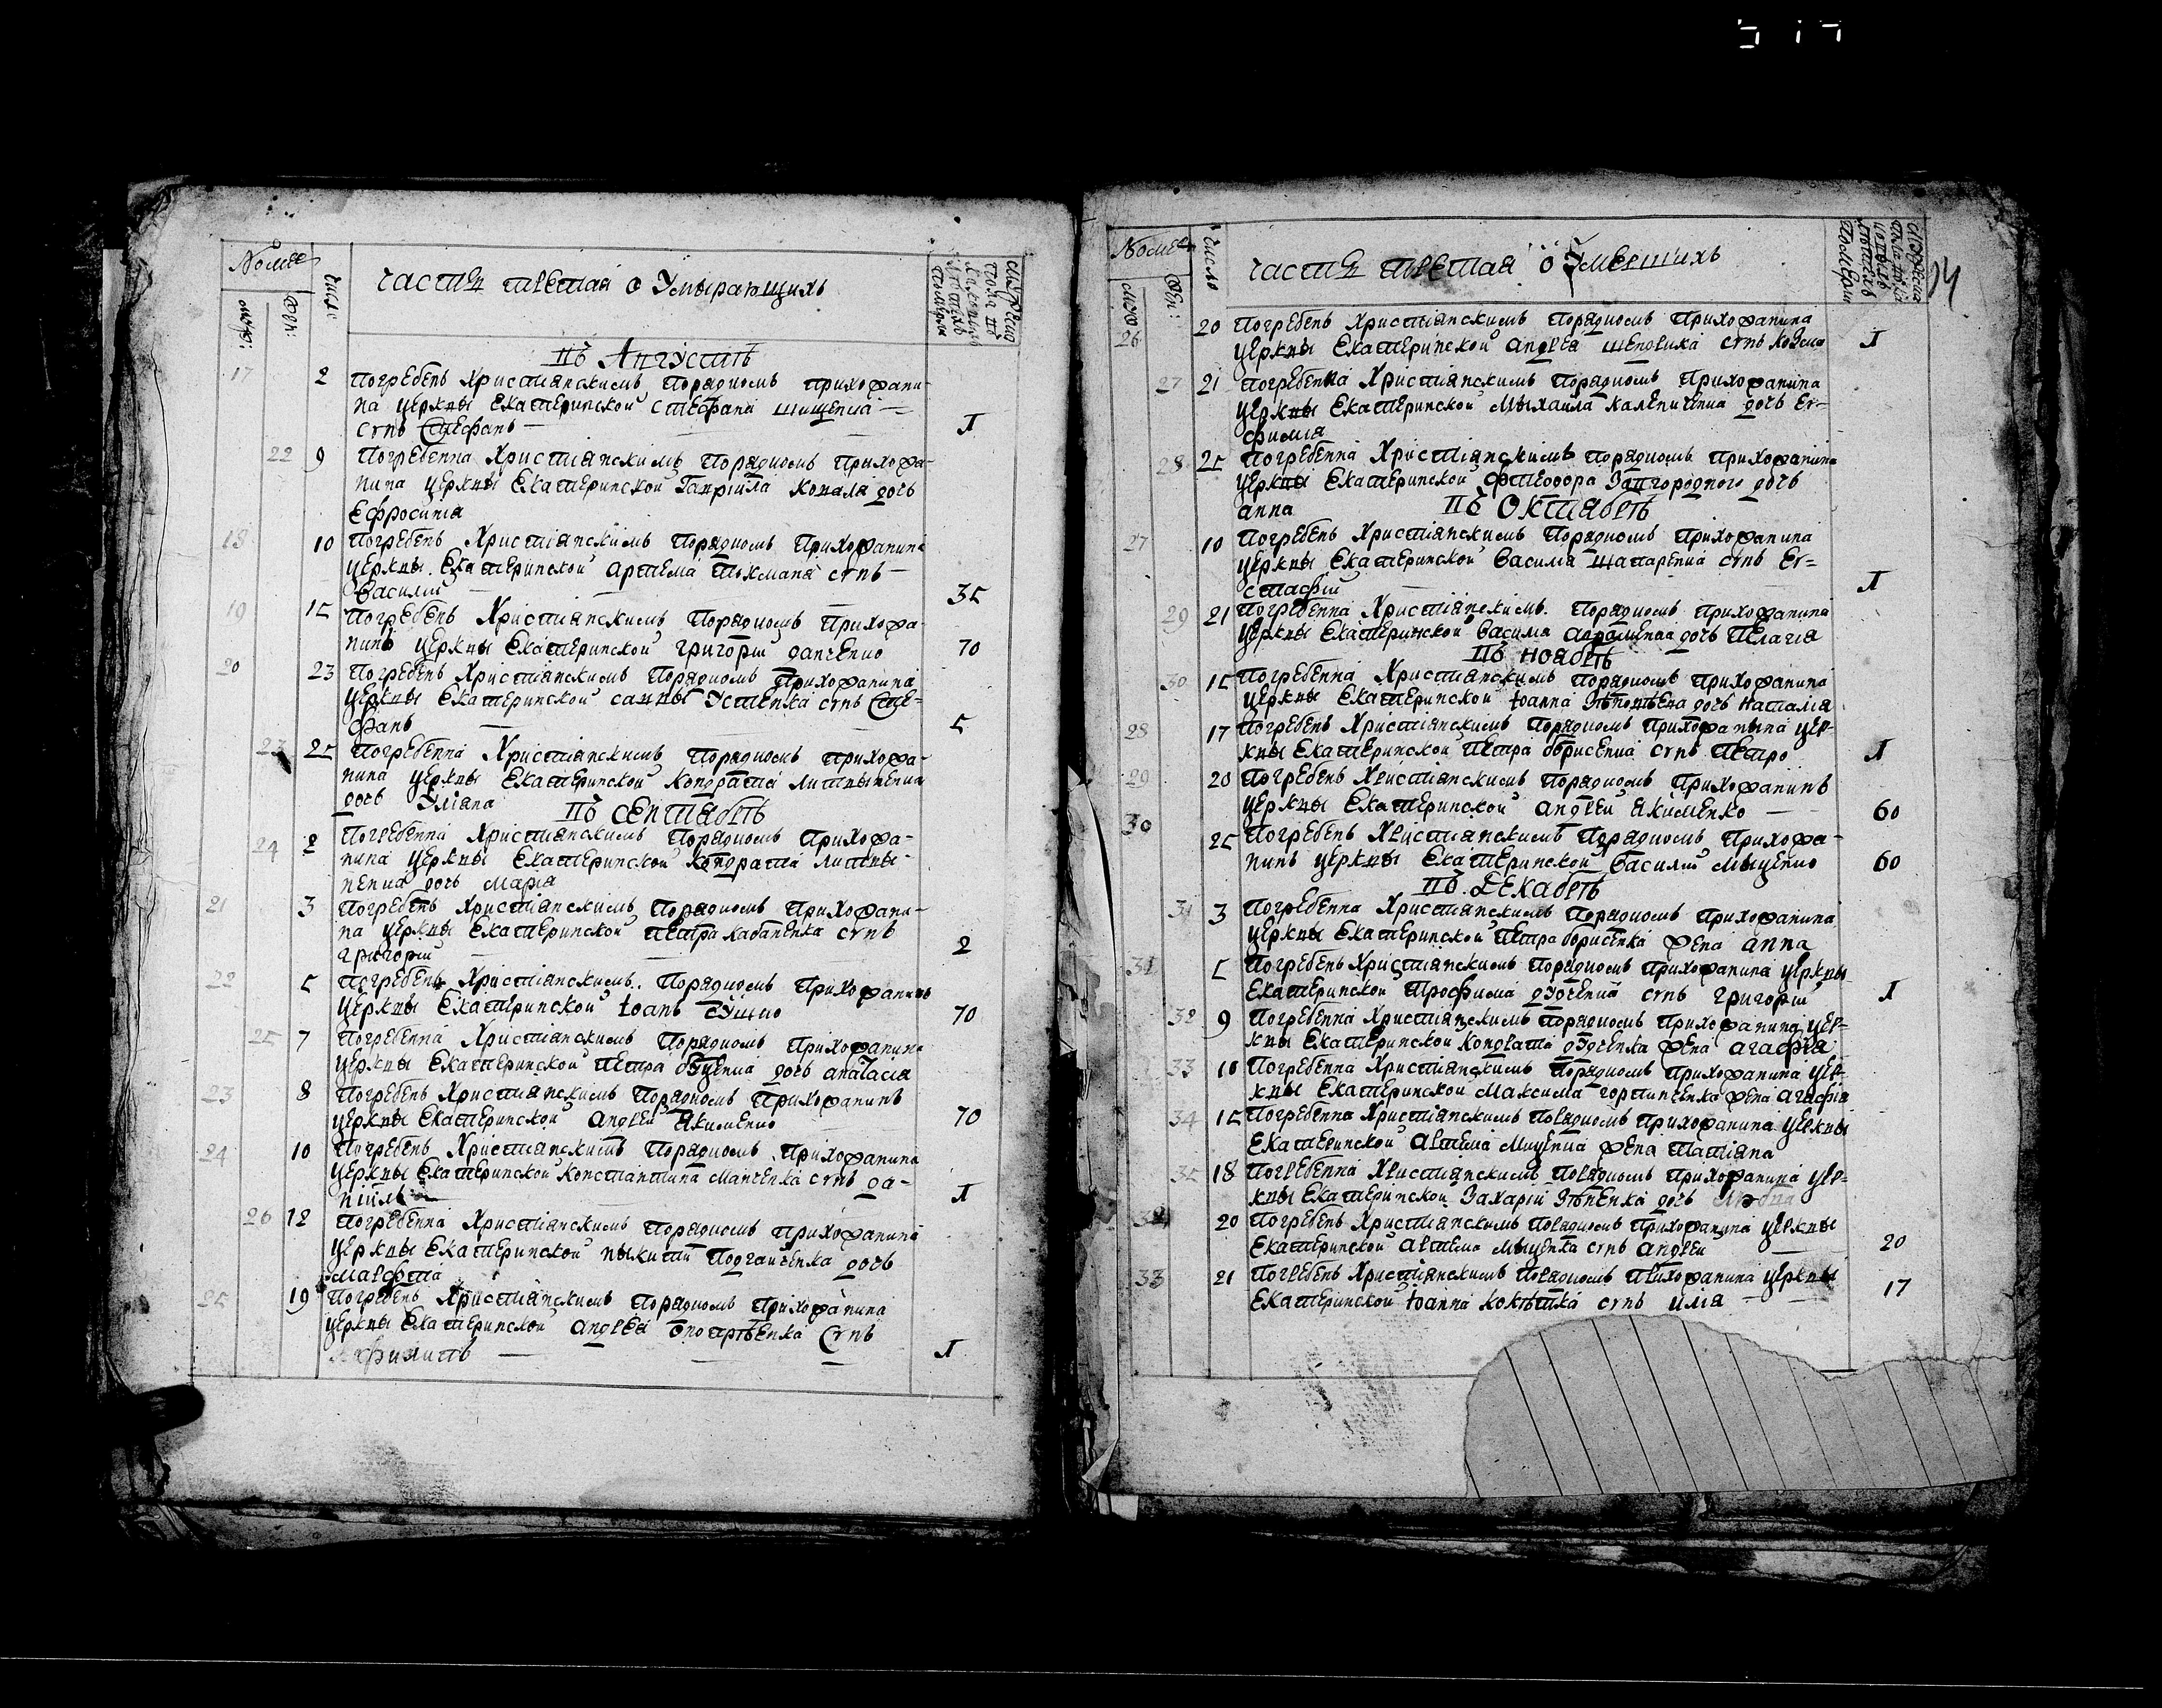 Номеръ
Число
часть третая о Умырающихъ
муж:
жен:
въ Августѣ
17 2 Погребенъ Христіянскимъ порядкомъ прихожани-
на церквы Екатеринской Стефана
снъ Стефанъ — 1
22 9 Погребенна Христіянскимъ порядкомъ прихожа-
нина церквы Екатеринской Гавріила Коваля дочь
Ефросинія
18 10 Погребенъ Христіянскимъ порядкомъ прихожанина
церквы Екатеринской Артема снъ —
Василий — 35
19 15 Погребенъ Христіянскимъ порядкомъ прихожа-
нинъ церквы Екатеринской Григорий Данченко 70
20 23 Погребенъ Христіянскимъ порядкомъ прихожанина
церквы Екатеринской Саввы Устенка снъ Сте-
фанъ — 5
23 25 Погребенна Христіянскимъ порядкомъ прихожа-
нина церквы Екатеринской Кондратія Литвыненка
дочь Уліяна
въ Сентябрѣ
24 2 Погребенна Христіянскимъ порядкомъ прихожа-
нина церквы Екатеринской Кондратія Литвы-
ненка дочь Марія
21 3 Погребенъ Христіянскимъ порядкомъ прихожани-
на церквы Екатеринской Петра Кабаненка снъ
Григорий — 2
22 5 Погребенъ Христіянскимъ порядкомъ прихожанинъ
церквы Екатеринской Іоанъ 70
25 7 Погребенна Христіянскимъ порядкомъ прихожанина
церквы Екатеринской Петра дочь
23 8 Погребенъ Христіянскимъ порядкомъ прихожанинъ
церквы Екатеринской Андрей Якименко 70
24 10 Погребенъ Христіянскимъ порядкомъ прихожанина
церквы Екатеринской Константина Манченка снъ Да-
ніилъ — 1
26 12 Погребенна Христіянскимъ порядкомъ прихожанина
церквы Екатеринской Ныкиты дочь
Марфта
25 19 Погребенъ Христіянскимъ порядкомъ прихожанина
церквы Екатеринской Андрея Онопріѣнка снъ
— 1
Номеръ
Число
часть третая о Умершихъ
муж:
жен:
26 20 Погребенъ Христіянскимъ порядкомъ прихожанина
церквы Екатеринской Андрея снъ Козма 1
27 21 Погребенна Христіянскимъ порядкомъ прихожанина
церквы Екатеринской Мыхаила дочь Ев-
фимія
28 25 Погребенна Христіянскимъ порядкомъ прихожанина
церквы Екатеринской Фтеодора Завгороднего дочь
Анна
въ Октябрѣ
27 10 Погребенъ Христіянскимъ порядкомъ прихожанина
церквы Екатеринской Василія снъ Ев=
стафий — 1
29 21 Погребенна Христіянскимъ порядкомъ прихожанина
церквы Екатеринской Василія дочь Пелагія
въ Ноябрѣ
30 15 Погребенна Христіянскимъ порядкомъ прихожанина
церквы Екатеринской Іоанна дочь Наталія
28 17 Погребенъ Христіянскимъ порядкомъ прихожанына цер-
квы Екатеринской Петра Борисенка снъ Петро 1
29 20 Погребенъ Христіянскимъ порядкомъ прихожанинъ
церквы Екатеринской Андрей Якименко — 60
30 25 Погребенъ Христіянскимъ порядкомъ прихожа-
нинъ церквы Екатеринской Василий Мыценко 60
въ Декабрѣ
31 3 Погребенна Христіянскимъ порядкомъ прихожанина
церквы Екатеринской Петра Борисенка жена Анна
31 5 Погребенъ Христіянскимъ порядкомъ прихожанина церквы
Екатеринской Трофима Дудченка снъ Григорий 1
32 9 Погребенна Христіянскимъ порядкомъ прихожанина цер=
квы Екатеринской Кондрата Дудченка жена Агафія
33 10 Погребенна Христіянскимъ порядкомъ прихожанина цер-
квы Екатеринской Максима жена Агафія
34 15 Погребенна Христіянскимъ порядкомъ прихожанина церквы
Екатеринской Артема Миценка жена Татіяна
35 18 Погребенна Христіянскимъ порядкомъ прихожанина цер=
квы Екатеринской Захарій дочь
32 20 Погребенъ Христіянскимъ порядкомъ прихожанина церквы
Екатеринской Артема Мыценка снъ Андрей — 20
33 21 Погребенъ Христіянскимъ порядкомъ прихожанина церквы
Екатеринской Іоанна снъ Илія — 17